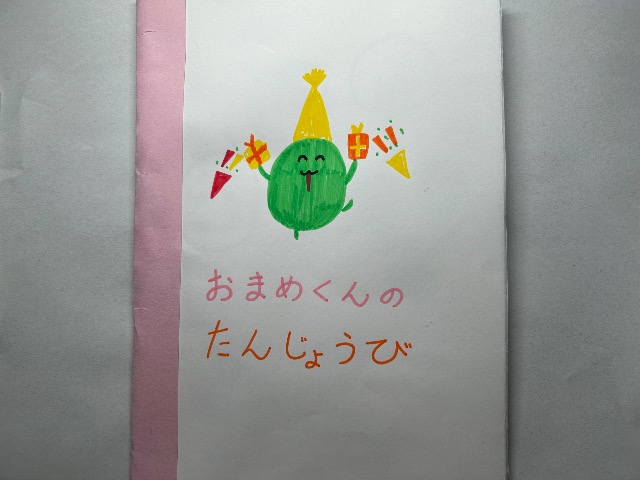 おまめくんの
たんじょうび